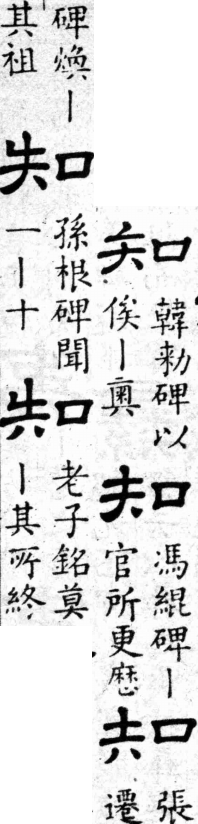 知
韓勑碑以
俟丨奥
知
馮緄碑丨
官所更歷
知
張
遷
碑煥丨
其祖
知
孫根碑聞
一丨十
知
老子銘莫
丨其所終